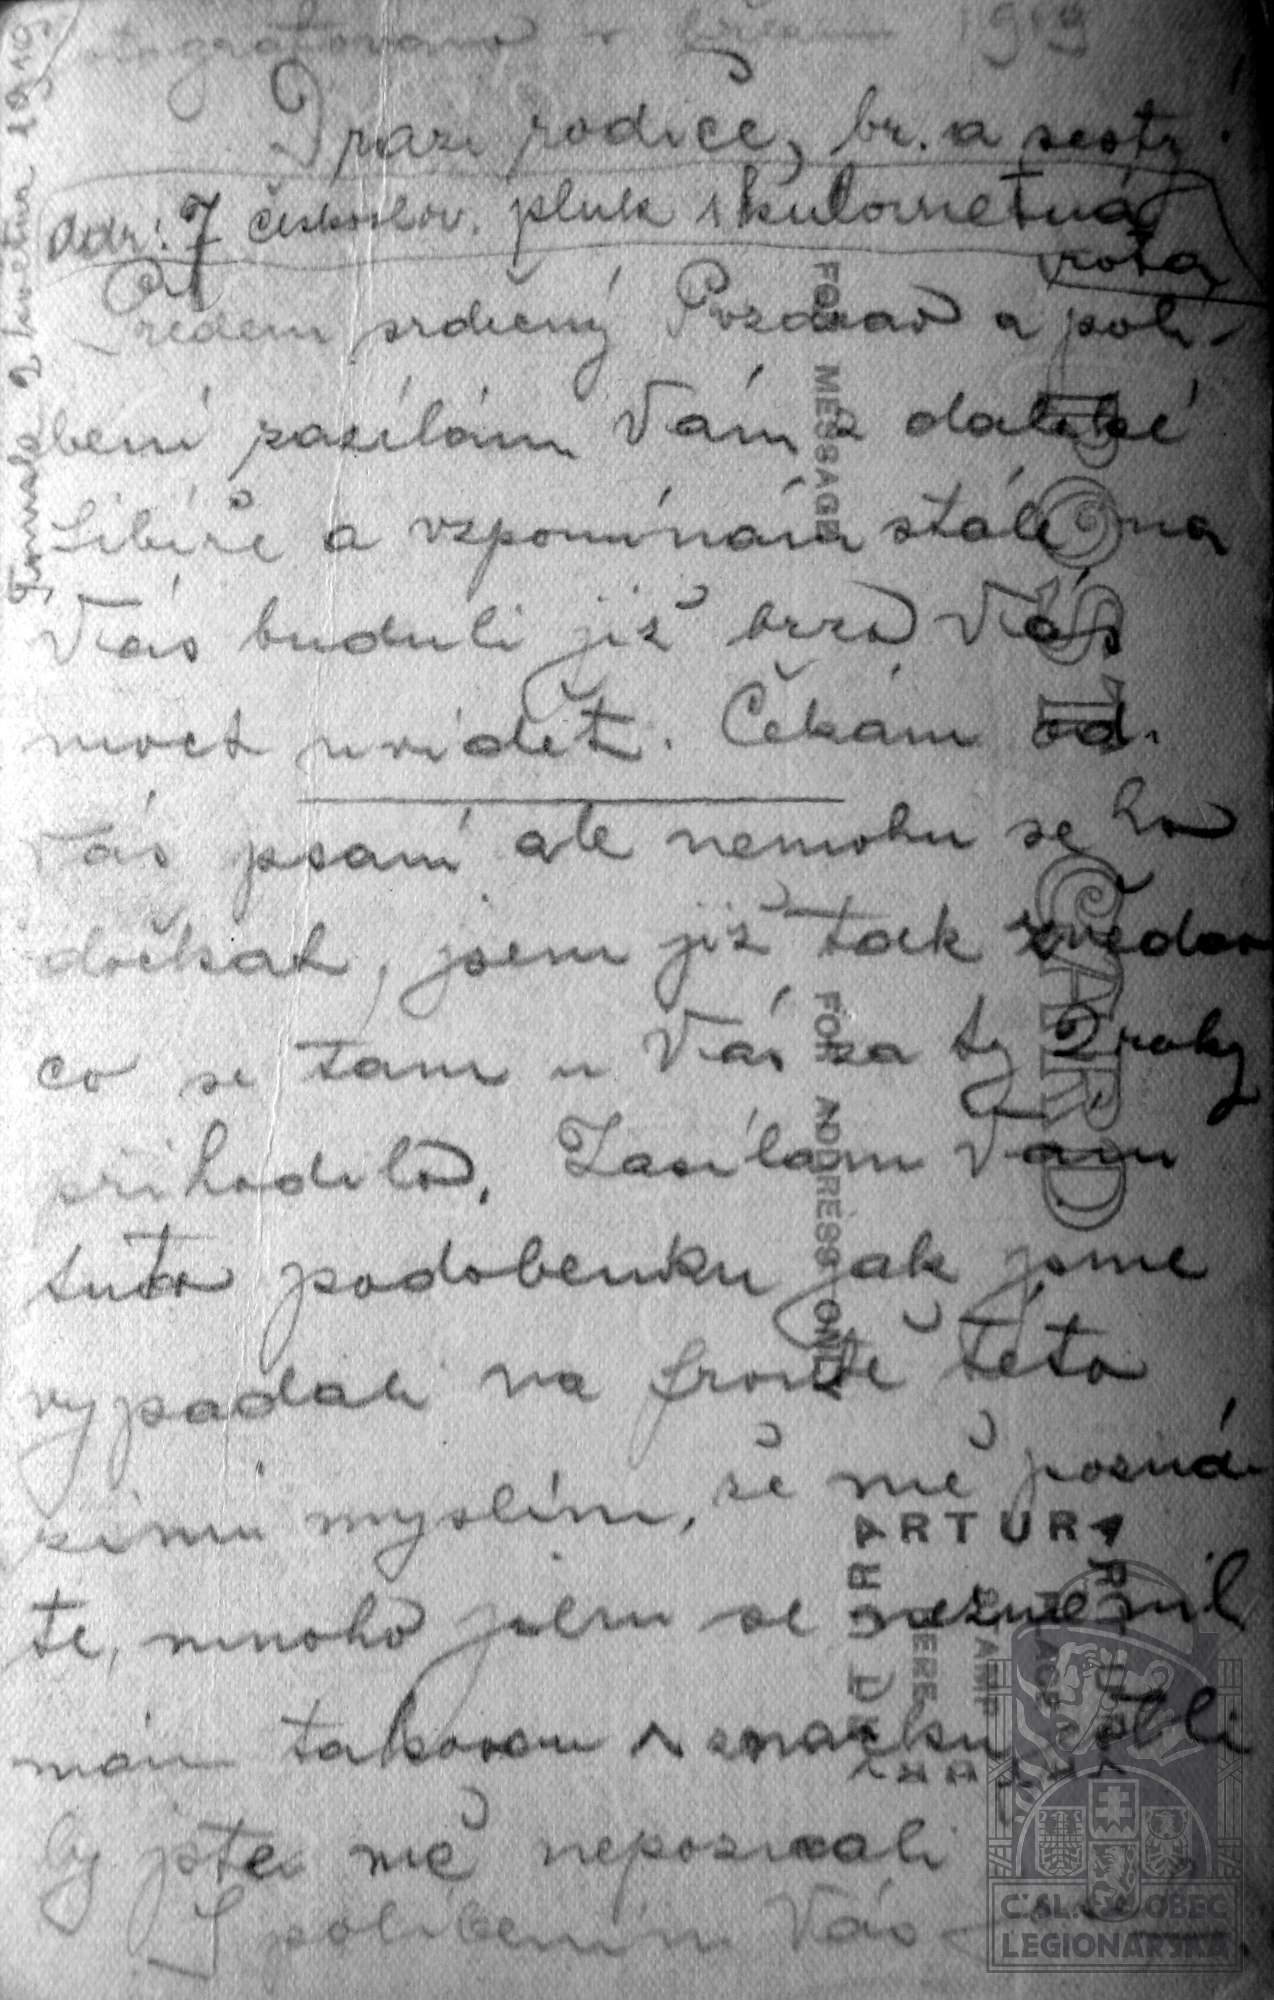 fotografováno v březnu 1919
Tomsk 2 května 1919
Drazí rodiče, br. a sestr!
Adr: 7 českoslov. pluk 1 kulometná
rota
Předem srdečný Pozdrav a polí-
bení zasílám Vám z daleké
Sibíře a vzpomínám stále na
Vás buduli již brzo Vás
moct uvidět. Čekám od
Vás psaní ale nemohu se ho
dočkat, jsem již tak zvědav
co se tam u Vás za ty 2 roky
přihodilo. Zasílám Vám
tuto podobenku jak jsme
vypadali na frontě této
zimu myslím, že mě pozná-
te, mnoho jsem se nezměnil
mám takovou značku
by jste mě nepoznali
S políbením Vás
POST CARD
FOR MESSAGE
FOR ADDRESS ONLY
ARTURA
ARTURA
ARTURA
ARTURA
PLACE
STAMP
HERE
ČSL. OBEC
LEGIONÁŘSKÁ